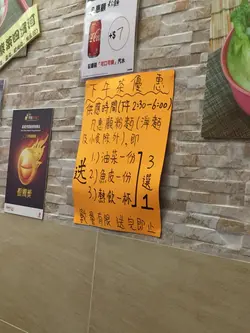 +$7
下午茶優惠
供應時間(下午2:30-6:00)
凡惠顧粉麵(淨麵
及小食除外),即
送
1)油菜一份
2)魚皮一份
3)熱飲一杯
3
選
1
數量有限 送完即止